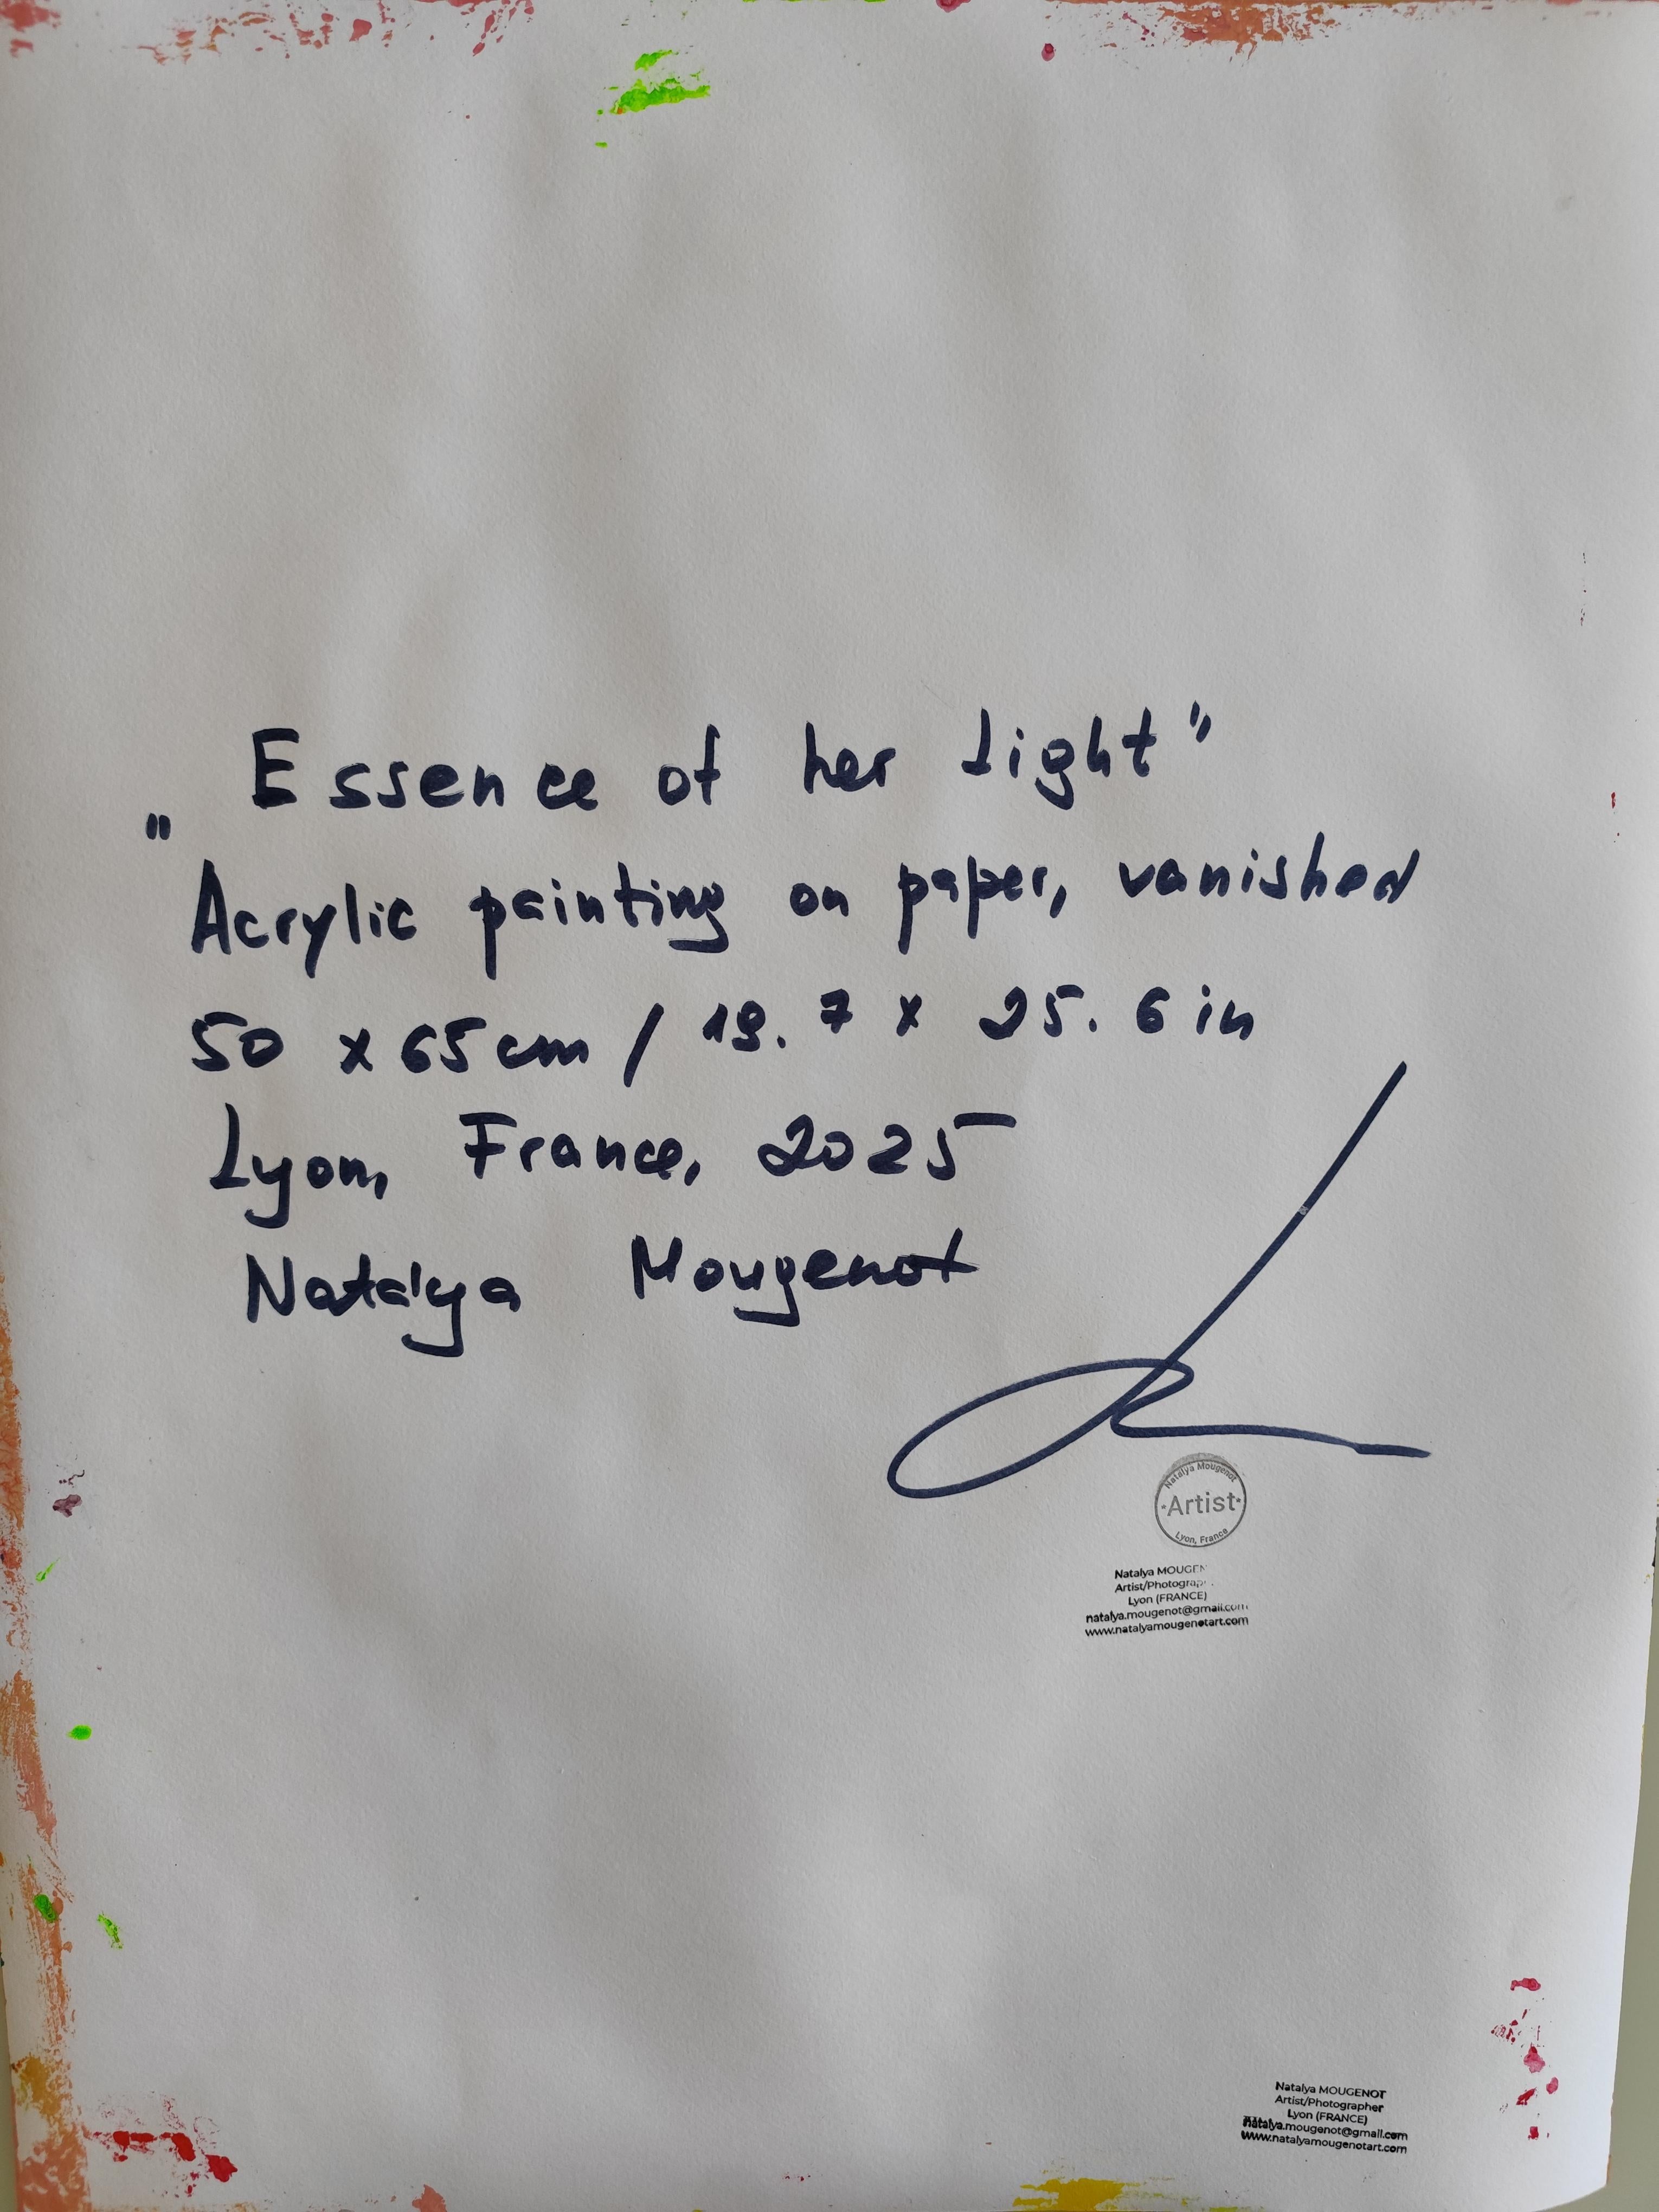 „ Essence of her Light"
Acrylic painting on paper, vanished
50 x 65 cm / 19.7 x 25.6 in
Lyon, France, 2025
Natalya Mougenot
Natalya Mougenot
•Artist•
Lyon, France
Natalya MOUGEN
Artist/Photograp
Lyon (FRANCE)
natalya.mougenot@gmail.com
www.natalyamougenotart.com
Natalya MOUGENOT
Artist/Photographer
Lyon (FRANCE)
natalya.mougenot@gmail.com
www.natalyamougenotart.com